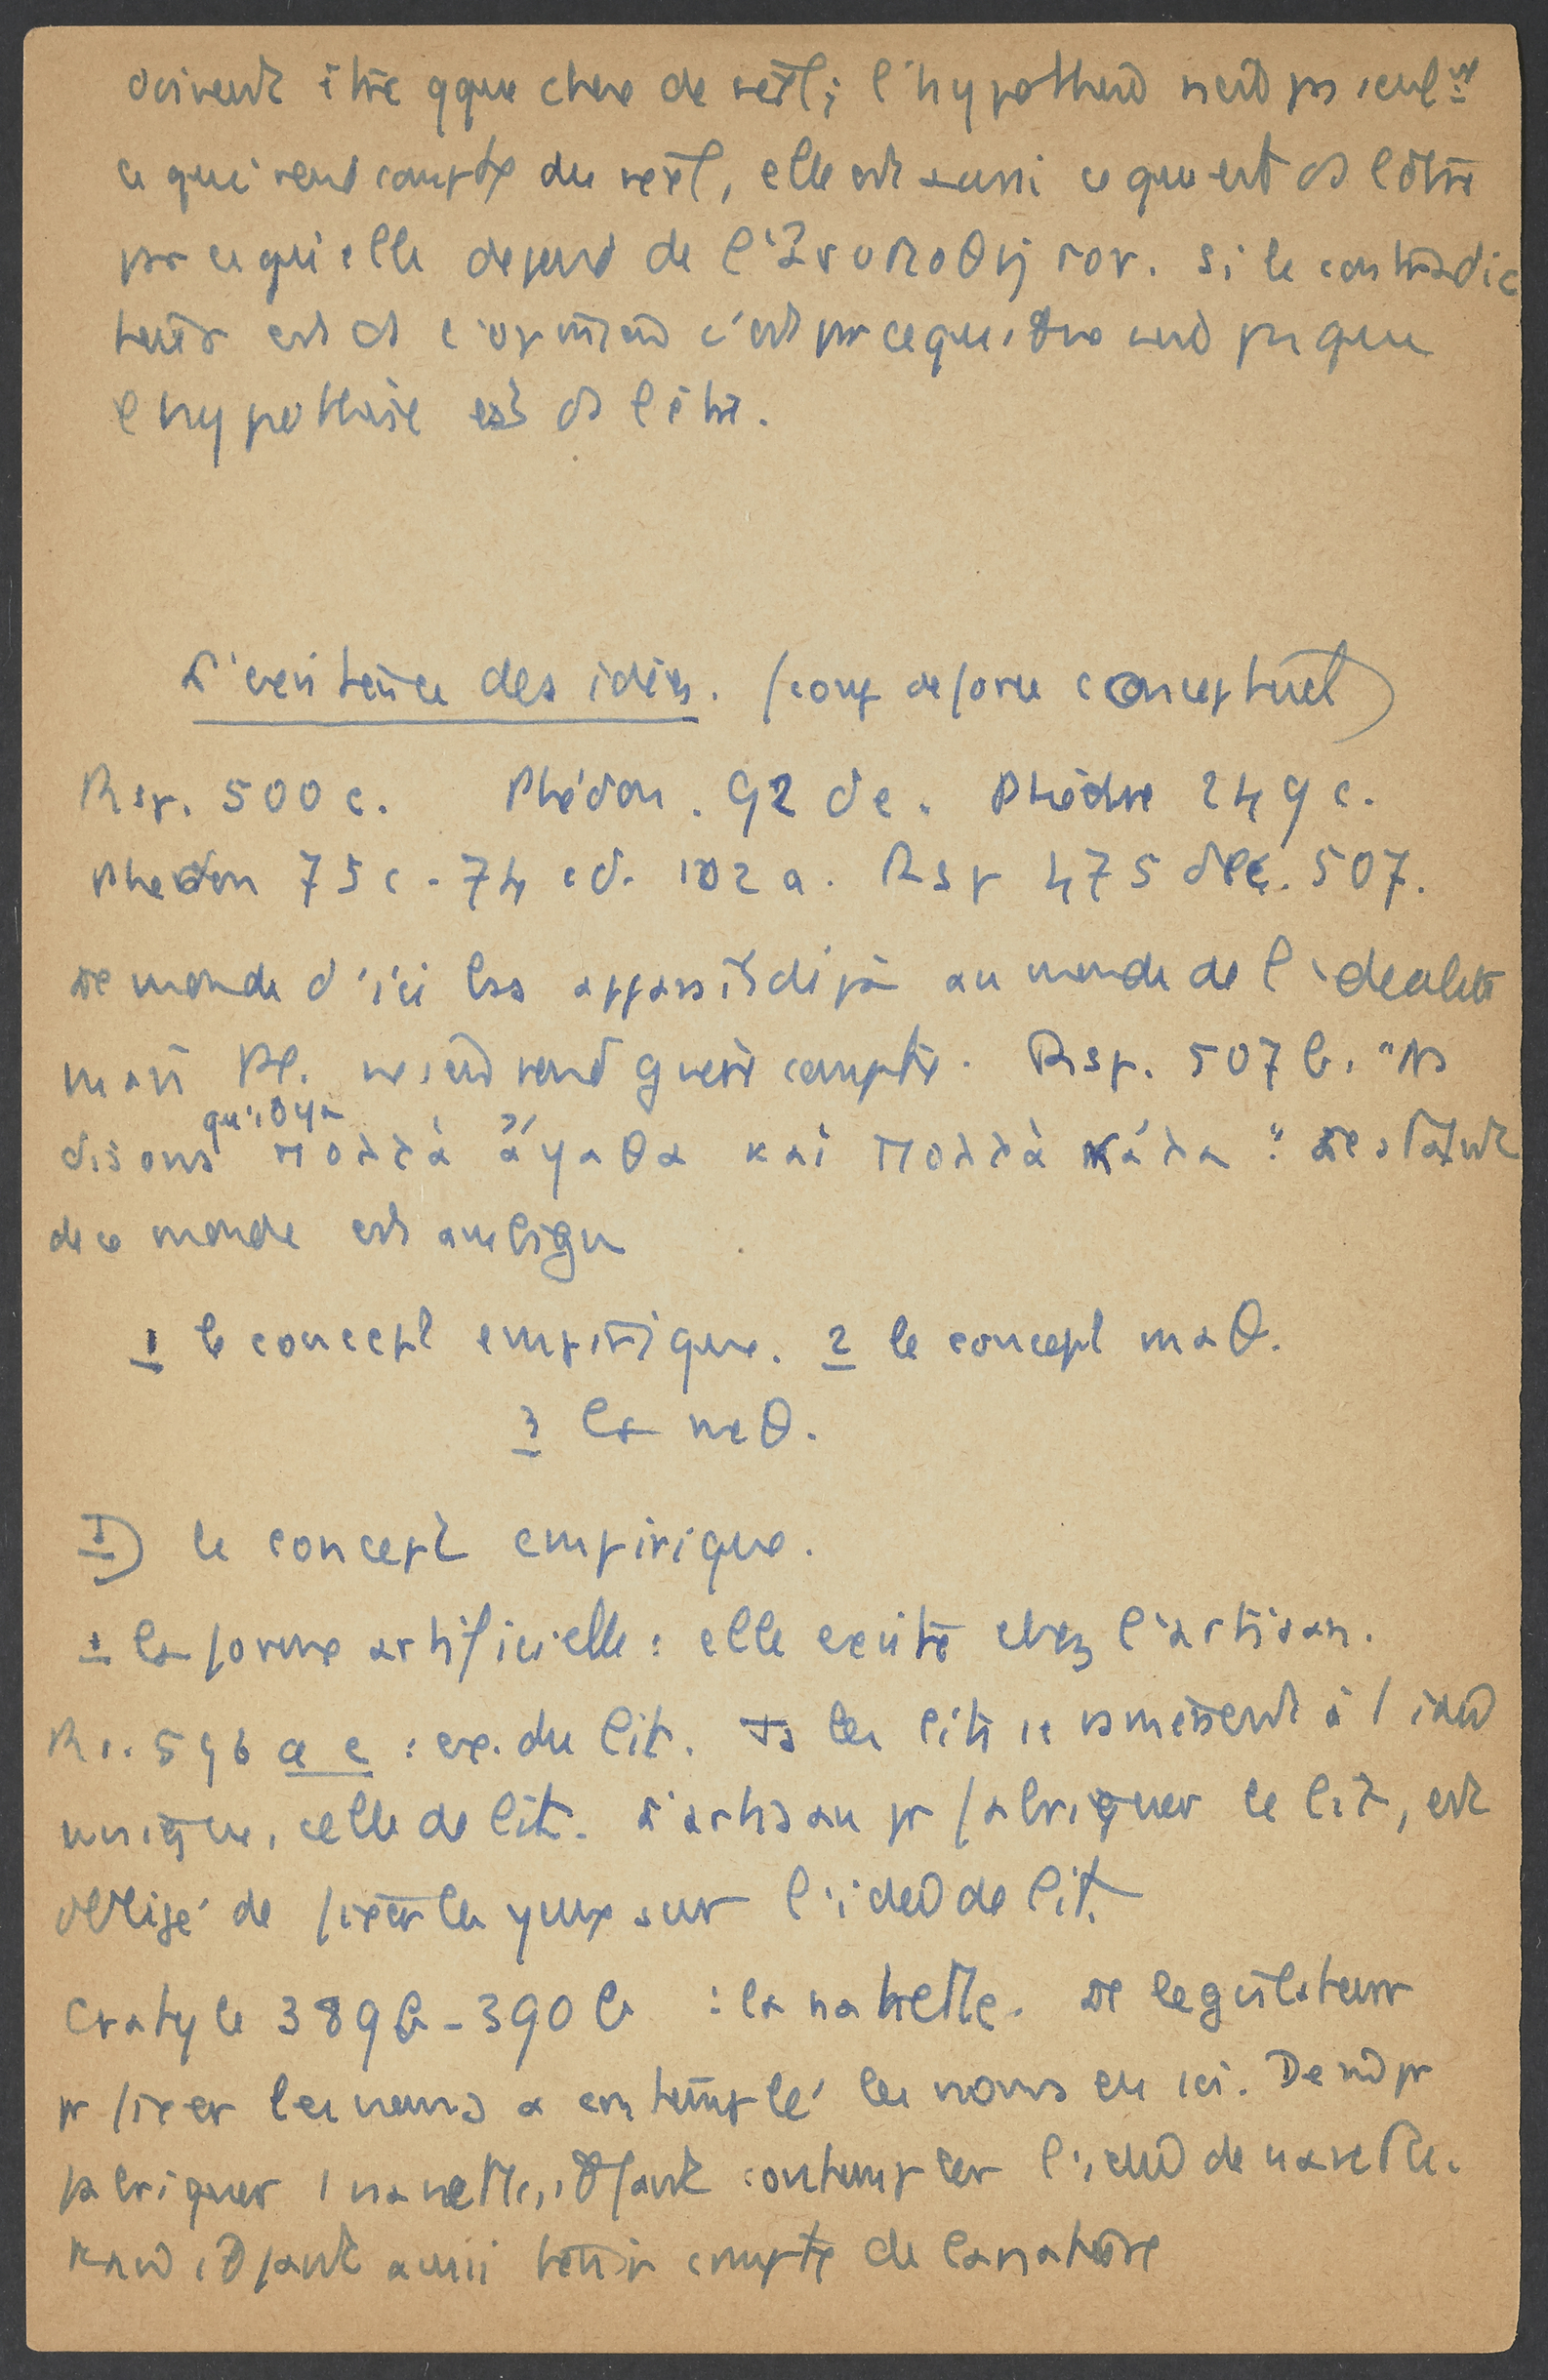 doivent être qque chose de réel; l'hypothèse n'est pas seul^nt
ce qui rend compte du réel, elle est aussi ce qui est ds l'être
par ce qu'elle dépend de l'ἀνυπόθητον. Si le contradic
toire est ds l'opinion c'est parce qu'il ne sent pas que
l'hypothèse est ds l'être.
L'existence des idées. (coup de force conceptuel)
Rep. 500 c. Phédon. 92 de. Phèdre 249 c.
Phedon 75 c - 74 cd. 102 a. Rep 475 dec. 507.
Le monde d'ici bas appart déjà au monde de l'idéalité
mais Pl. ne s'en rend guère compte. Rep. 507 b. "Ns
disons qu'il y a πολλὰ ἄγαθα καὶ πολλὰ κάλα": le statut
de ce monde est ambigu
1 le concept empirique. 2 le concept maθ.
3 la méθ.
I) le concept empirique.
1 la forme artificielle: elle existe chez l'artisan.
Re. 596 a e : ex. du lit. Ts les lits se ramènent à 1 idée
unique, celle de lit. L'artisan pr fabriquer le lit, est
obligé de fixer les yeux sur l'idée de lit.
Cratyle 389 b - 390 b : la navette. Le législateur
pr fixer les noms a contemplé les noms en soi. De m pr
fabriquer 1 navette, il faut contempler l'idée de navette.
Mais il faut aussi tenir compte de la matière